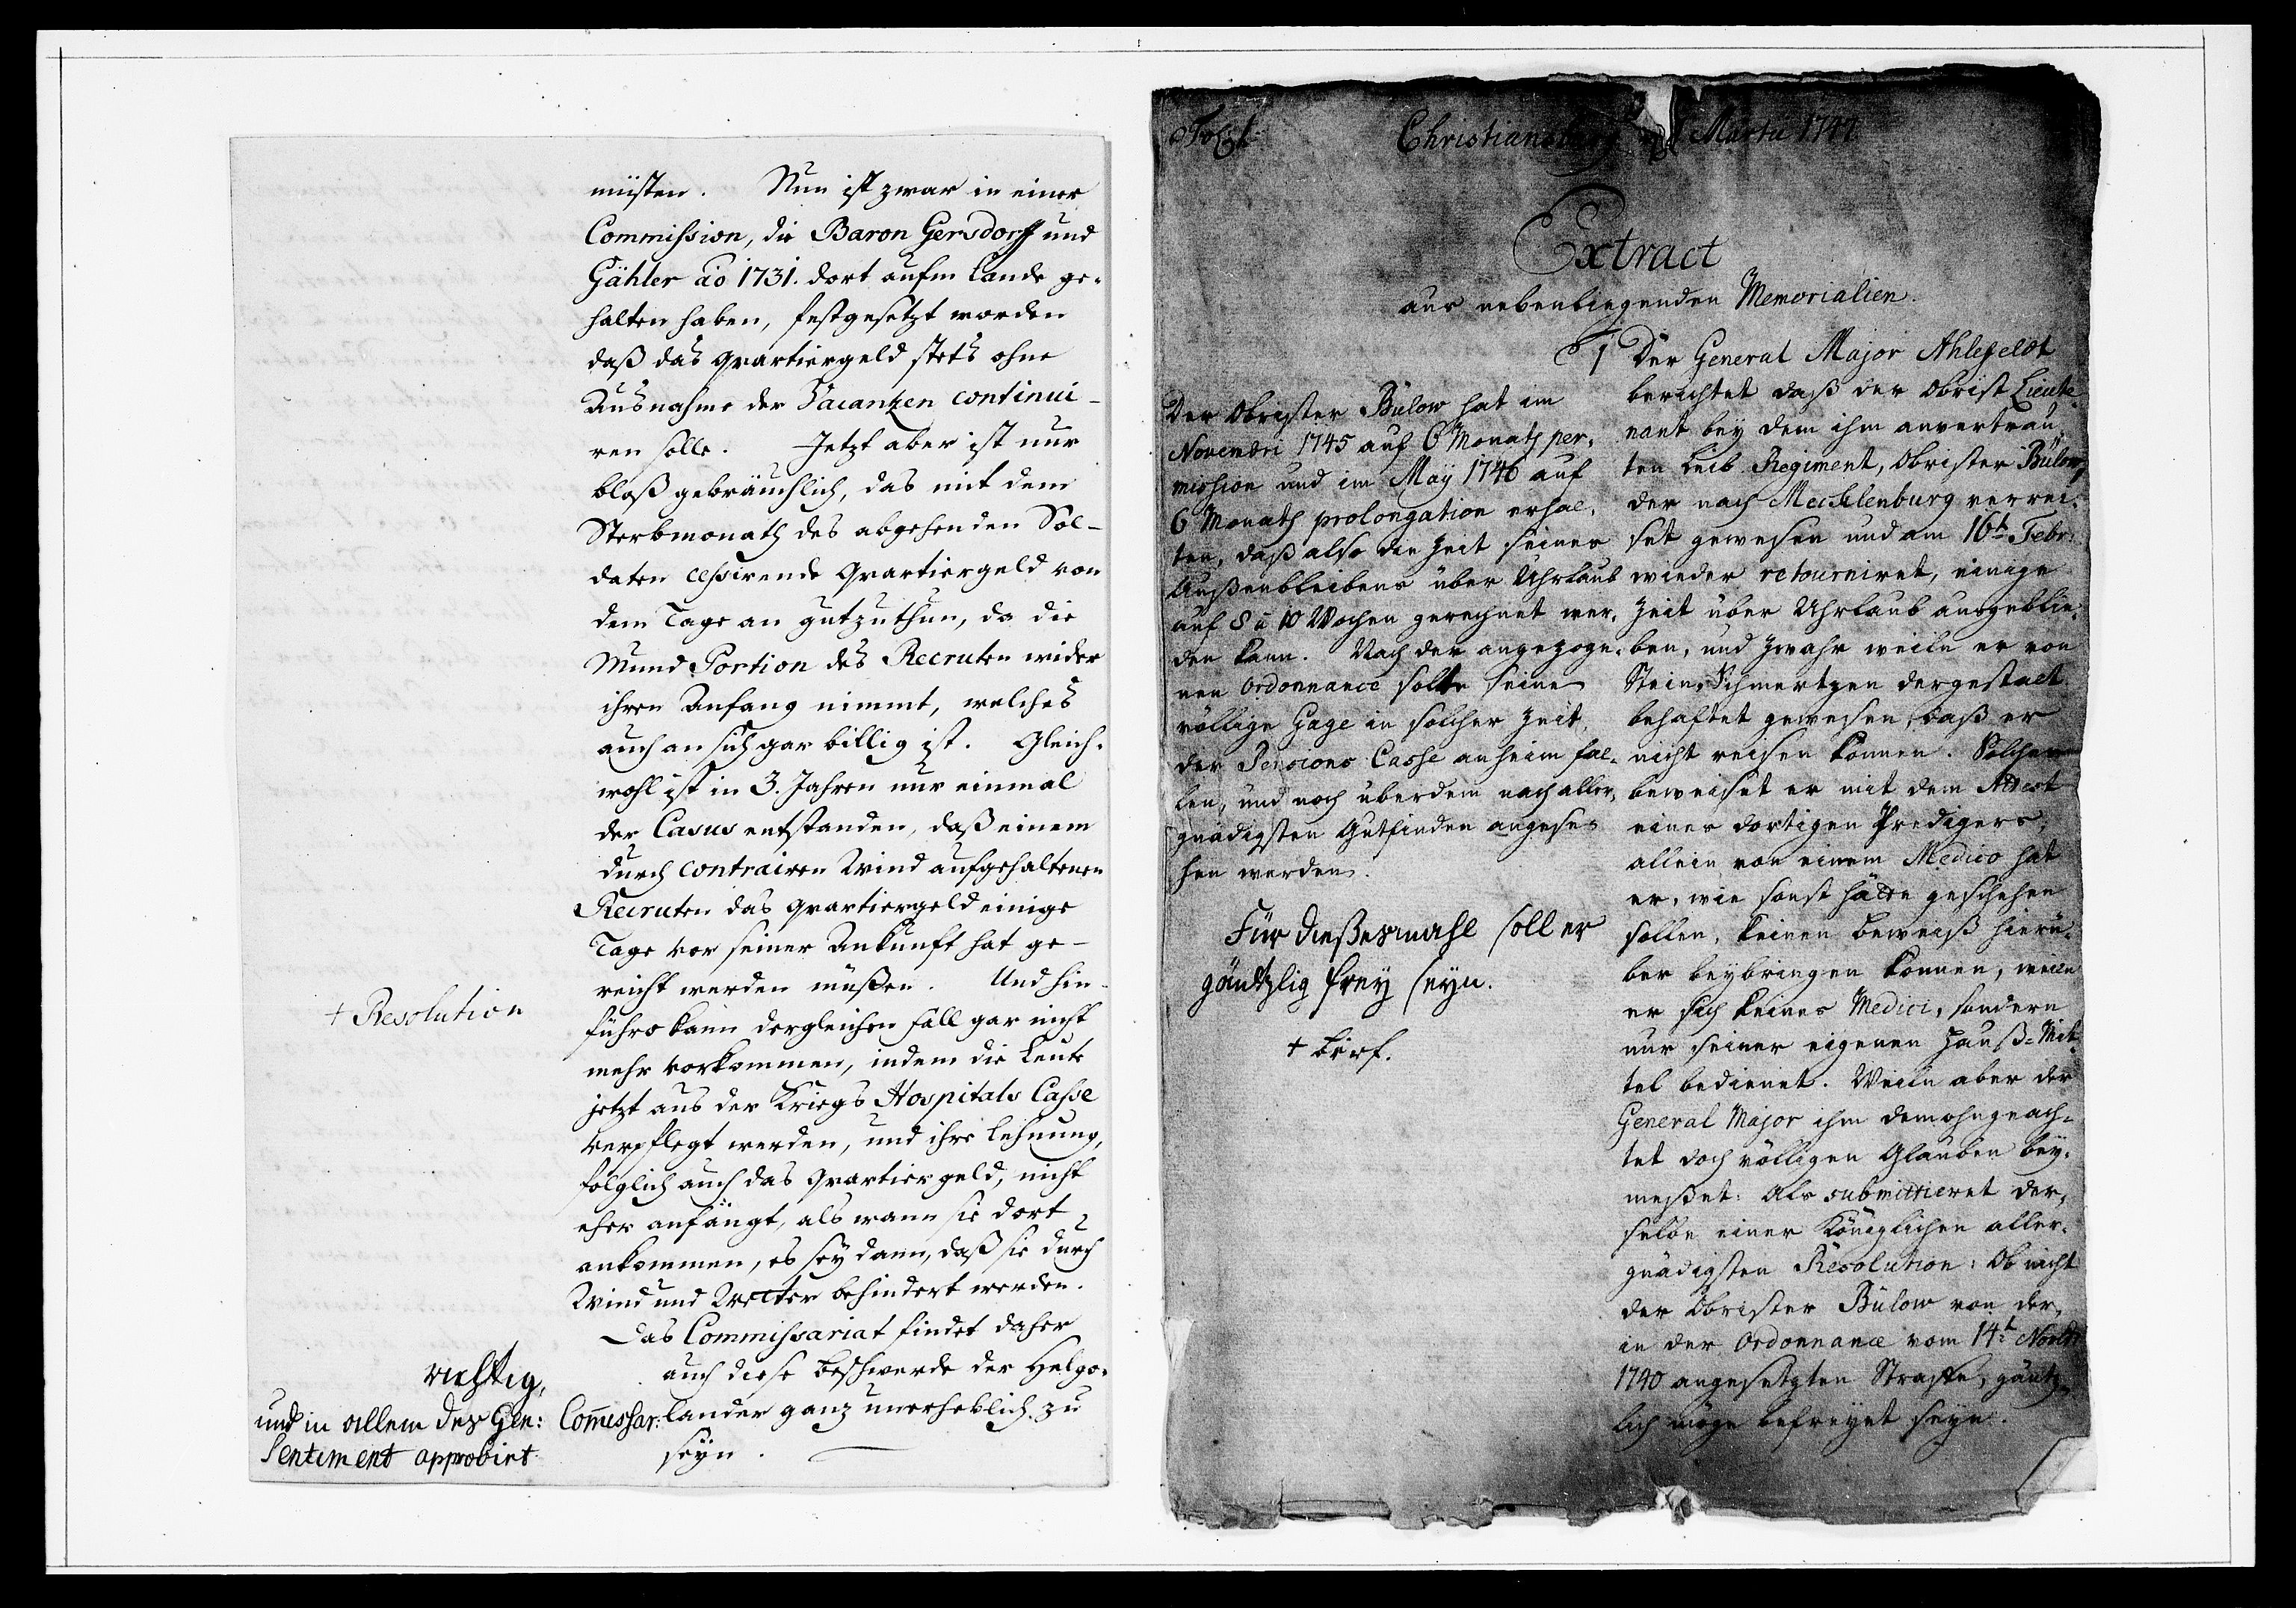 müsten. Nun ist zwar in einer
Commission, die Baron Gersdorff und
Gähler ao 1731. dort aufm Lande ge-
halten haben, festgesetzt worden
daß das quartiergeld stets ohne
Ausnahme der Vacantzen continui-
ren solle. Jetzt aber ist nur
bloß gebräuchlich, das mit dem
Sterbmonath des abgehenden Sol-
daten cessirende Quartiergeld von
dem Tage an gutzuthun, da die
Mund Portion des Recruten wider
ihren Anfang nimmt, welches
auch an sich gar billig ist. Gleich-
wohl ist in 3. Jahren nur einmal
der Casus entstanden, daß einem
durch contrairen Wind aufgehaltenen
Recruten das quartiergeld einige
Tage vor seiner Ankunft hat ge-
reicht werden müßen. Und hin-
führo kann dergleichen Fall gar nicht
mehr vorkommen, indem die Leute
jetzt aus der Kriegs Hospitals Casse
verpflegt werden, und ihre Lehnung,
folglich auch das quartiergeld, nicht
eher anfängt, als wann sie dort
ankommen, es sey dann, daß sie durch
Wind und Wetter behindert werden.
Das Commissariat findet daher
auch diese beschwerde der Helgo-
lander ganz unerheblich zu
seyn.
+ Resolution
richtig,
und in allem des Gen: Com̄issar:
Sentiment approbirt
Christiansburg Martii 1747
Extract
aus nebenliegenden Memorialien.
1 Der General Major Ahlefeldt
berichtet daß der Obrist Lieute-
nant bey dem ihm anvertrau-
ten Leib Regiment, Obrister Bülow,
der nach Mecklenburg verrei-
set gewesen und am 16t Febr:
wieder retourniret, einige
Zeit über Uhrlaub ausgeblie-
ben, und zwahr weiln er von
Stein-Schmertzen dergestalt
behaftet gewesen, daß er
nicht reisen können. Solches
beweiset er mit dem Attest
eines dortigen Predigers,
allein von einem Medico hat
er, wie sonst hätte geschehen
sollen, keinen beweiß hierü-
ber beybringen können, weiln
er sich keines Medici, sondern
nur seiner eigenen Hauß-Mit-
tel bedienet. Weiln aber der
General Major ihm demohngeach-
tet doch völligen Glauben bey-
meßet: Als submittieret der-
selbe einer Königlichen aller-
gnädigsten Resolution: Ob nicht
der Obrister Bülow von der,
in der Ordonnance vom 14t Novbr
1740 angesetzten Straffe, gäntz-
lich möge befreyet seyn.
Der Obrister Bülow hat im
Novembri 1745 auf 6 Monath per-
mission und im Maÿ 1746 auf
6 Monath prolongation erhal-
ten, daß also die Zeit seines
Außenbleibens über Uhrlaub
auf 8 à 10 Wochen gerechnet wer-
den kann. Nach der angezoge-
nen Ordonnance solte seine
völlige Gage in solcher Zeit
der Pensions Casse anheim fal-
len, und noch überdem nach aller-
gnädigsten Gutfinden angese-
hen werden.
Für dießesmahl soll er
gäntzlig frey seyn.